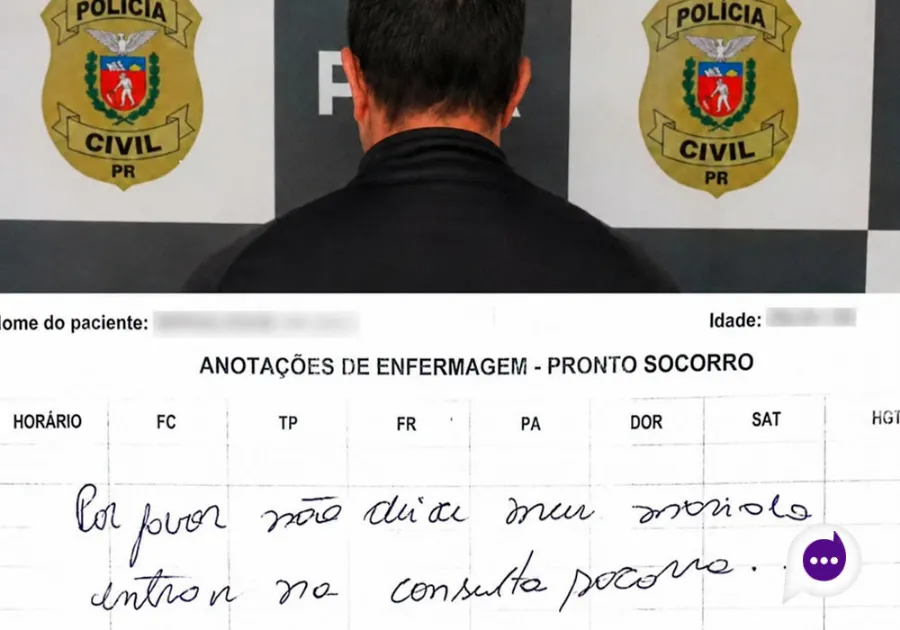 POLÍCIA
CIVIL
PR
P
POLÍCIA
CIVIL
PR
ome do paciente:
Idade:
ANOTAÇÕES DE ENFERMAGEM - PRONTO SOCORRO
HORÁRIO FC TP FR PA DOR SAT HGT
Por favor não deixe meu marido
entrar na consulta socorro...